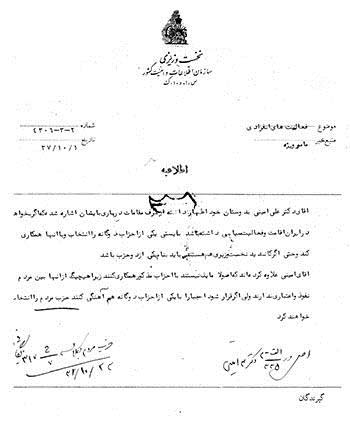 نخست وزیری
سازمان اطلاعات و امنیت کشور
س.ا.و.ا.ک
موضوع فعالیت های انفرادی
شماره ۲۳۰۶-۳-۲
منبع خبر مامور ویژه
تاریخ ۳۷/۱۰/۱
اطلاعیه
آقای دکتر علی امینی به دوستان خود اظهار داشته از طرف مقامات درباری بایشان اشاره شده که اگر بخواهد
در ایران اقامت و فعالیت سیاسی داشته باشد بایستی یکی از احزاب دوگانه را انتخاب و با آنها همکاری
کند و حتی اگر کاندید نخست وزیری هم هستند باید بنام یکی از دو حزب باشد
آقای امینی علاوه کرده اند که اصولا مایل نیستند با احزاب مذکور همکاری کنند زیرا هیچیک از آنها بین مردم
نفوذ و اعتباری ندارند ولی اگر قرار شود اجبارا با یکی از احزاب دوگانه هم آهنگی کنند حزب مردم را انتخاب
خواهند کرد
اصل در
دکتر امینی
حزب مردم
گیرندگان